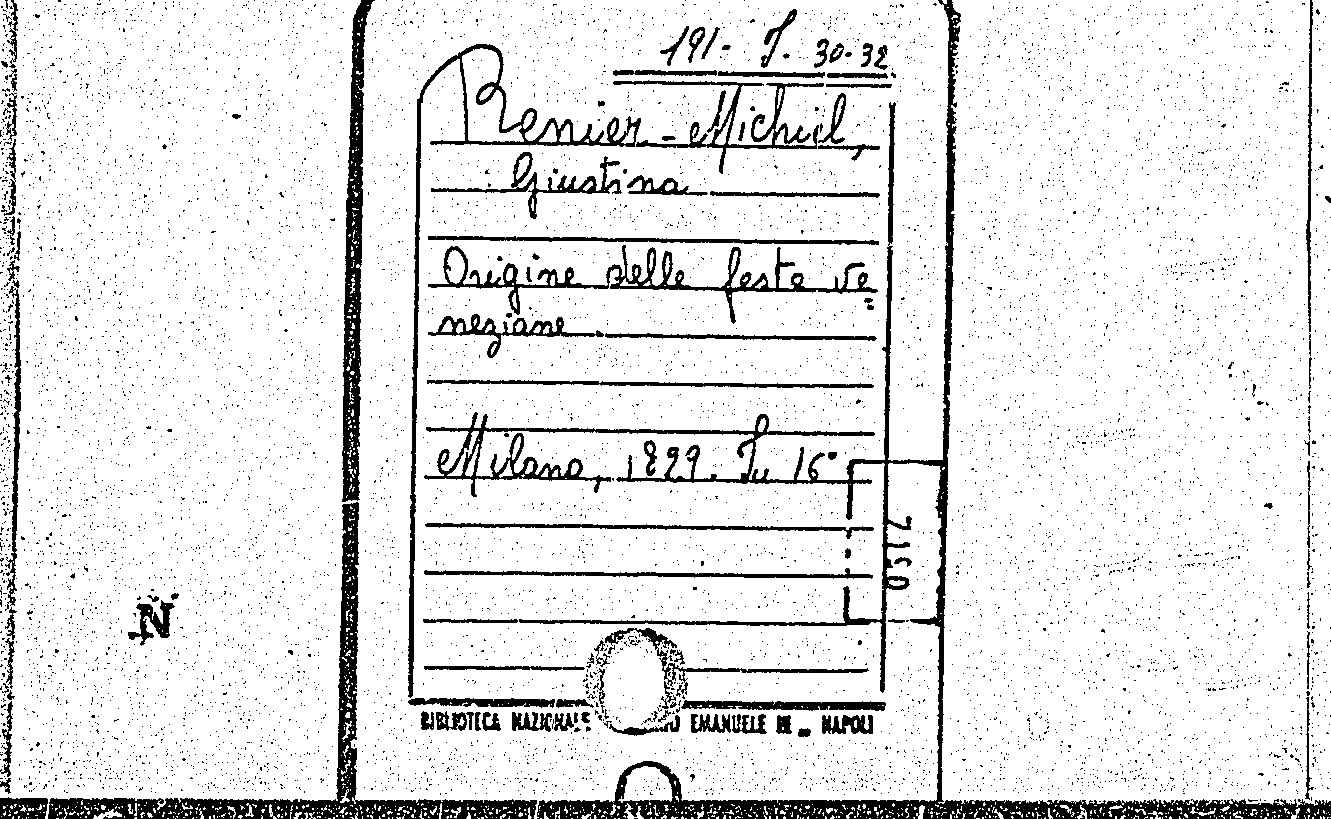 191- J. 30-32
Renier-Michiel,
Giustina
Origine delle feste ve=
neziane
Milano, 1829. In 16°
0572
N
BIBLIOTECA NAZIONALE EMANUELE III NAPOLI